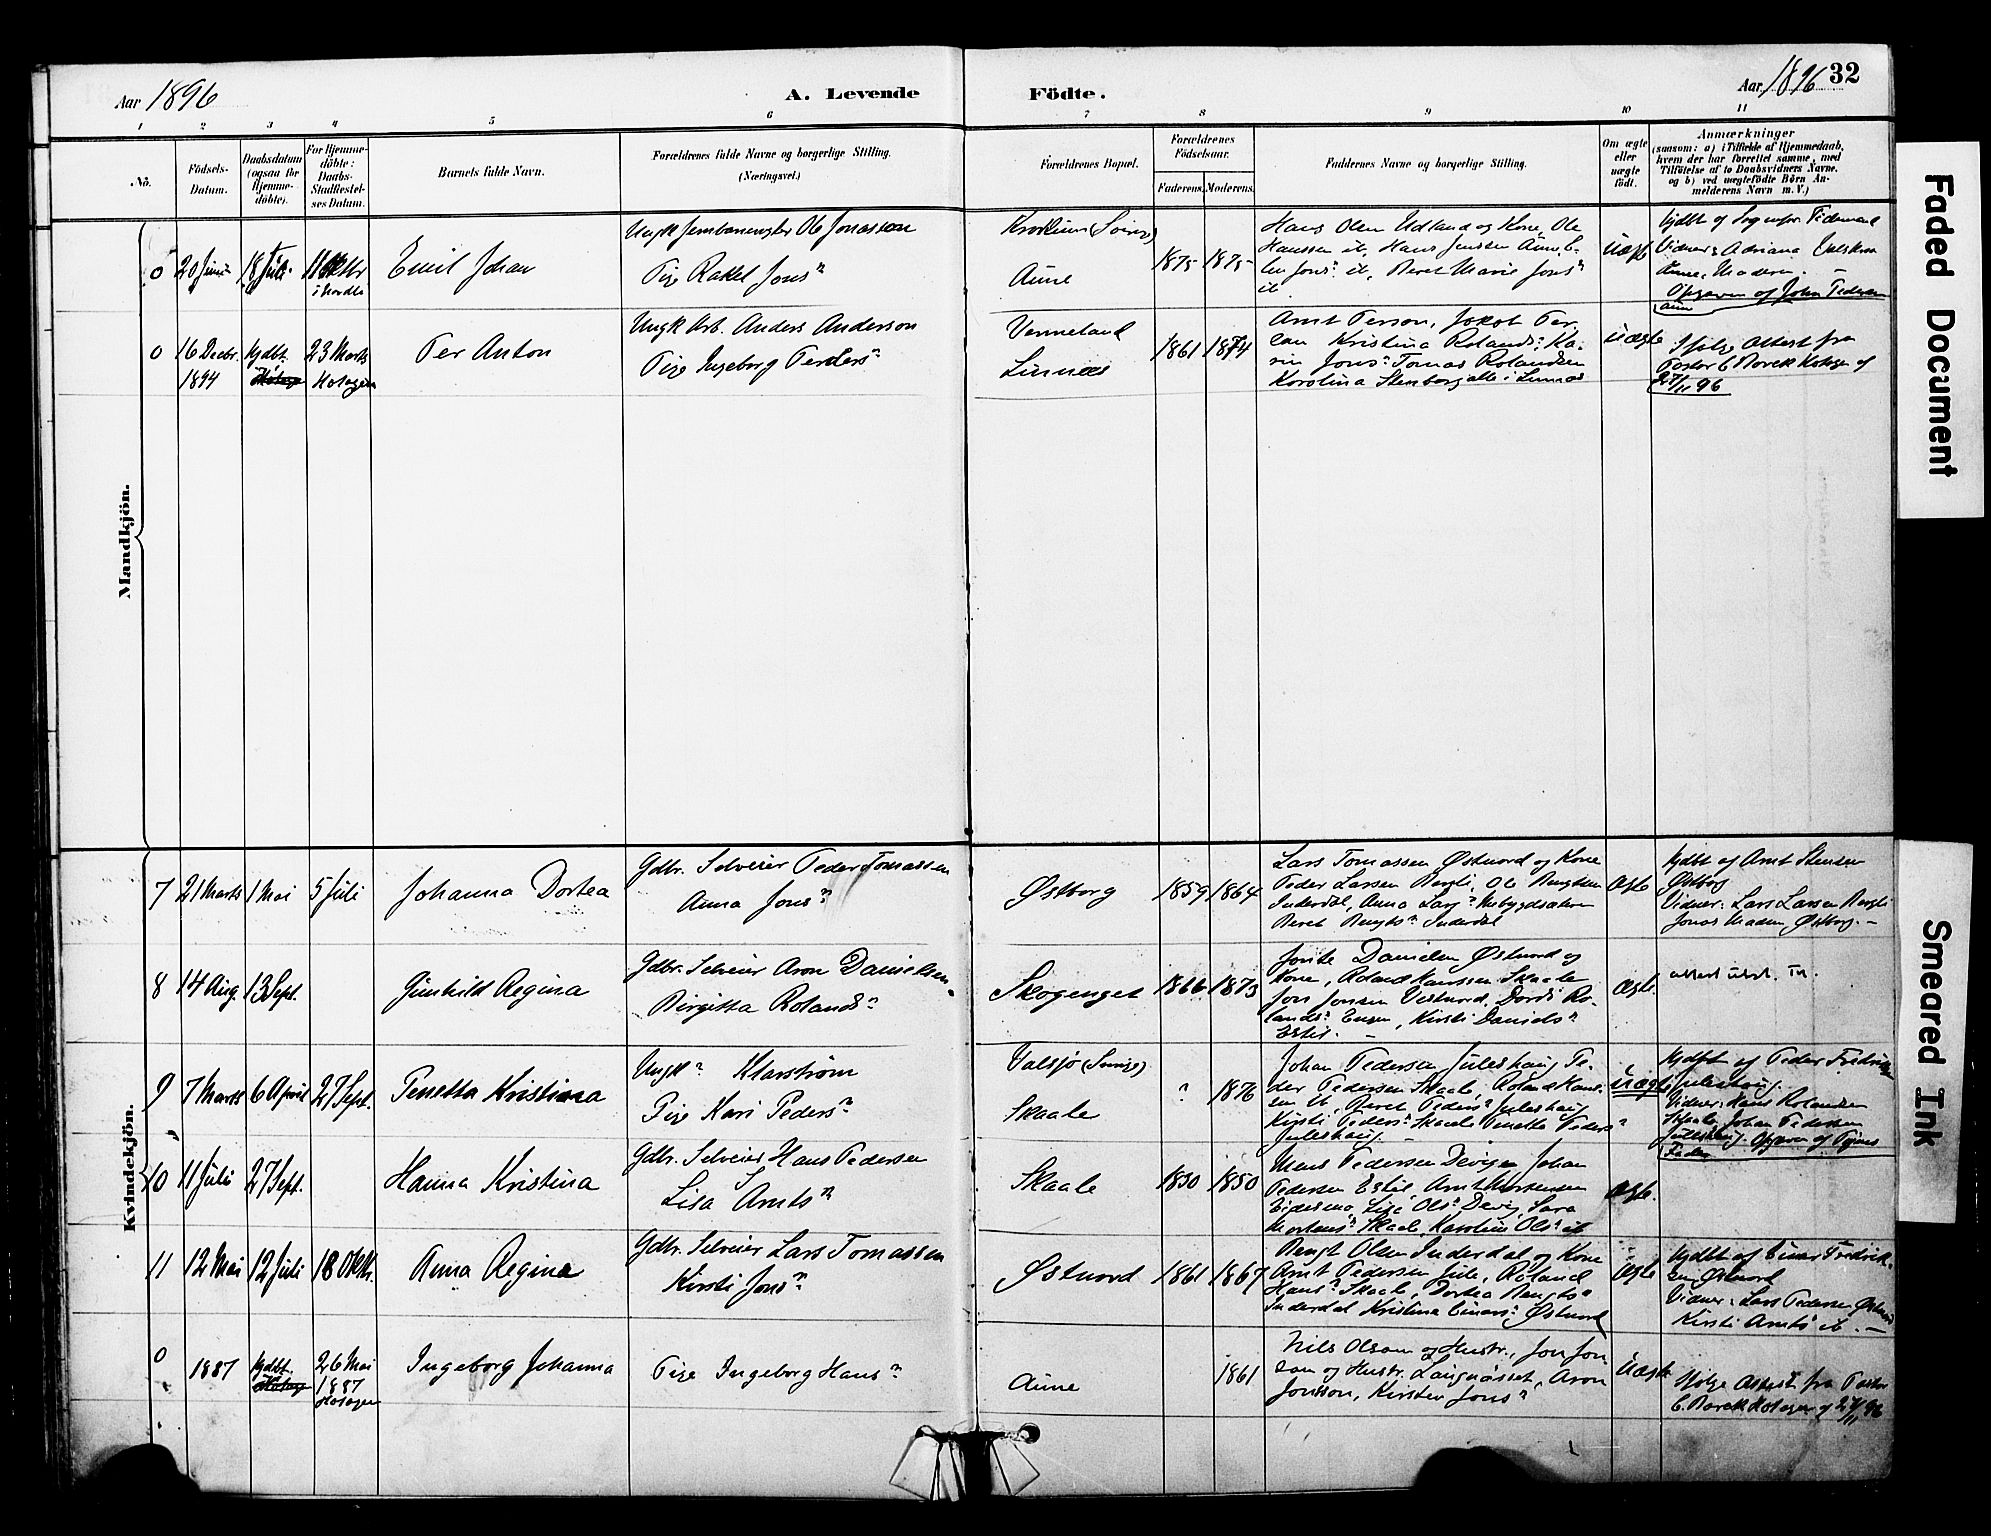 Aar 1896
A. Levende
Födte.
Aar 1896
32
1 2 3 4 5 6 7 8 9 10 11
No.
Födsels-
Datum.
Daabsdatum
(ogsaa for
Hjemme-
döbte).
For Hjemme-
döbte:
Daabs-
Stadfæstel-
ses Datum.
Barnets fulde Navn.
Forældrenes fulde Navne og borgerlige Stilling.
(Næringsvei.)
Forældrenes Bopæl.
Forældrenes
Födselsaar.
Faderens. Moderens.
Faddernes Navne og borgerlige Stilling.
Om ægte
eller
uægte
födt.
Anmærkninger
(saasom: a) i Tilfælde af Hjemmedaab,
hvem der har forrettet samme, med
Tilföielse af to Daabsvidners Navne,
og b) ved uægtefödte Börn An-
melderens Navn m. V.)
Mandkjön.
0
20 Juni
18 Juli
11 Oktbr
i Nordli
Emil Johan
Ungk Jernbanearb Ole Jonasson
Pige Rakel Jons n
Aune
1875
1875
Hans Olsen Udland og Kone, Ole
Hanssen ib, Hans Jensen Aune,
Jons n ib, Beret Marie Jons n
ib
Uægte
Hjdbt af Sognepr.
Vidner: Adriana
Aune, Moderen. -
Opgaven af John Pedersen
Aune
0
16 Decbr.
1894
Hjdbt.
23 Marts
Hotagen
Per Anton
Ungk Arb. Anders Anderson
Pige Ingeborg Perders n
Vermeland
Linnæs
1861
1874
Arnt Person, Jakob Per
son Kristina Rolands n Ka-
rin Jons n Tomas Rolandsen
Karolina Stenborg alle i Linnæs
Uægte
Ifølge Attest fra
Pastor E Borek Hotagen af
27/11 96
Kvindekjön.
7
21 Marts
1 Mai
5 Juli
Johanna Dortea
Gdbr. Selveier Peder Tomassen
Anna Jons n
Østborg
1859
1864
Lars Tomassen Østnord og Kone
Peder Larsen Bergli, Ole Bengtsen
Inderdal, Anna Lars n
Beret Bengts n Inderdal
Ægte
Hjdbt af Arnt Stensen
Østborg
Vidner: Lars Larsen Bergli
Jonas Madsen Østborg. -
8
14 Aug.
13 Sept.
Gunhild Regina
Gdbr. Selveier Aron Danielsen
Birgitta Rolands n
Skogenget
1866
1873
Danielsen Østnord og
Kone, Roland Hanssen Skaale
Jon Jonsen Vestnord, Dordi Ro-
lands n, Kirsti Daniels n
Estil. -
Ægte.
attest udst.
9
7 Marts
6 April
27 Sept.
Penetta Kristiana
Ungk n Klarstrøm
Pige Kari Peders n
Valsjø (Sverige)
Skaale
?
1876
Johan Pedersen Juleshaug Pe-
der Pedersen Skaale, Roland Hans-
sen ib, Beret Peders n Juleshaug
Kirsti Peders n Skaale Penette Peders n
Juleshaug. -
Uægte
Hjdbt af Peder Fredriksen
Juleshaug.
Vidner: Hans Rolandsen
Skaale, Johan Pedersen
Juleshaug. Opgaven af Pigens
Fader
10
11 Juli
27 Sept.
Hanna Kristina
Gdbr. Selveier Hans Pedersen
Lisa Arnts n
Skaale
1830
1850
Mons Pedersen Devigen Johan
Pedersen Estil, Arnt Mortensen
Lisa Ols n Devig, Sara
Mortens n Skaale, Karoline Ols n ib
Ægte.
11
12 Mai
12 Juli
18 Oktbr.
Anna Regine
Gdbr. Selveier Lars Tomassen
Kirsti Jons n
Østnord
1861
1867
Bengt Olsen Inderdal og Kone
Arnt Pedersen Jule, Roland
Hans n Skaale, Dortea Bengts n
Inderdal Kristina Einars n Østnord
Ægte
Hjdbt af Einar Fredrik-
sen Østnord
Vidner: Lars Pedersen Østnord
Kirsti Arnts ib. -
0
1887
Hjdbt.
26 Mai
1887
Hotagen
Ingeborg Johanna
Pige Ingeborg Hans n
Aune
1861
Nils Olsson og Hustr., Jon Jon-
son og Hustr. Laugnässet, Aron
Jonsson, Kirsten Jons n
Uægte
Ifølge Attest fra Pastor
E. Borek Hotagen af 27/11 96
Faded Document
Smeared Ink